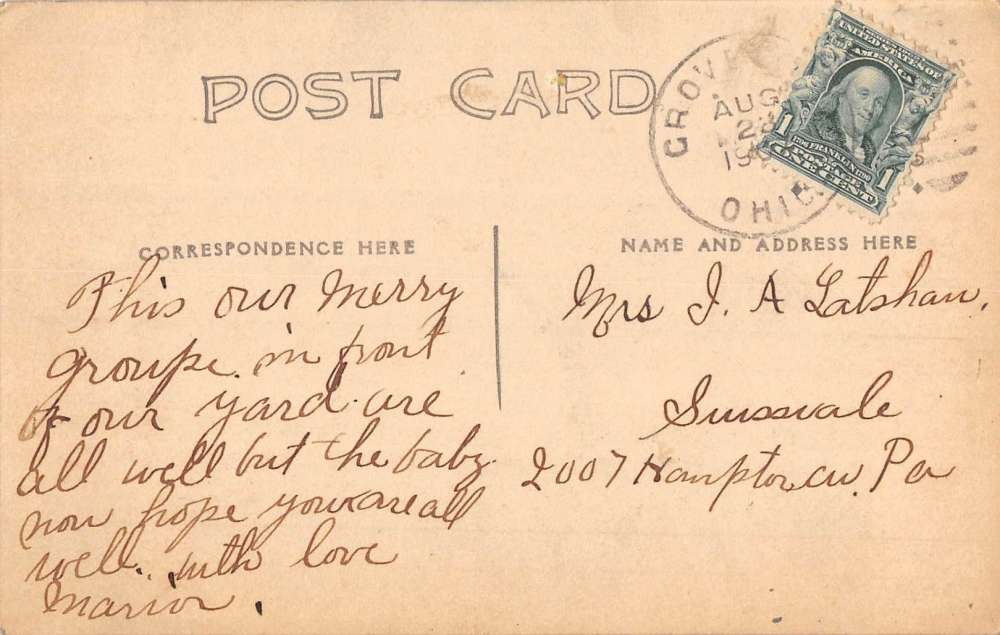 POST CARD
GROV
AUG
OHIO
UNITED STATES OF
AMERICA
1 FRANKLIN 1
POSTAGE
ONE CENT
CORRESPONDENCE HERE
NAME AND ADDRESS HERE
This our merry
groupe in front
of our yard are
all well but the baby
now hope you are all
well. with love
Marion.
Mrs J. A Latshaw.
Swissvale
2007 Hampton av. Pa